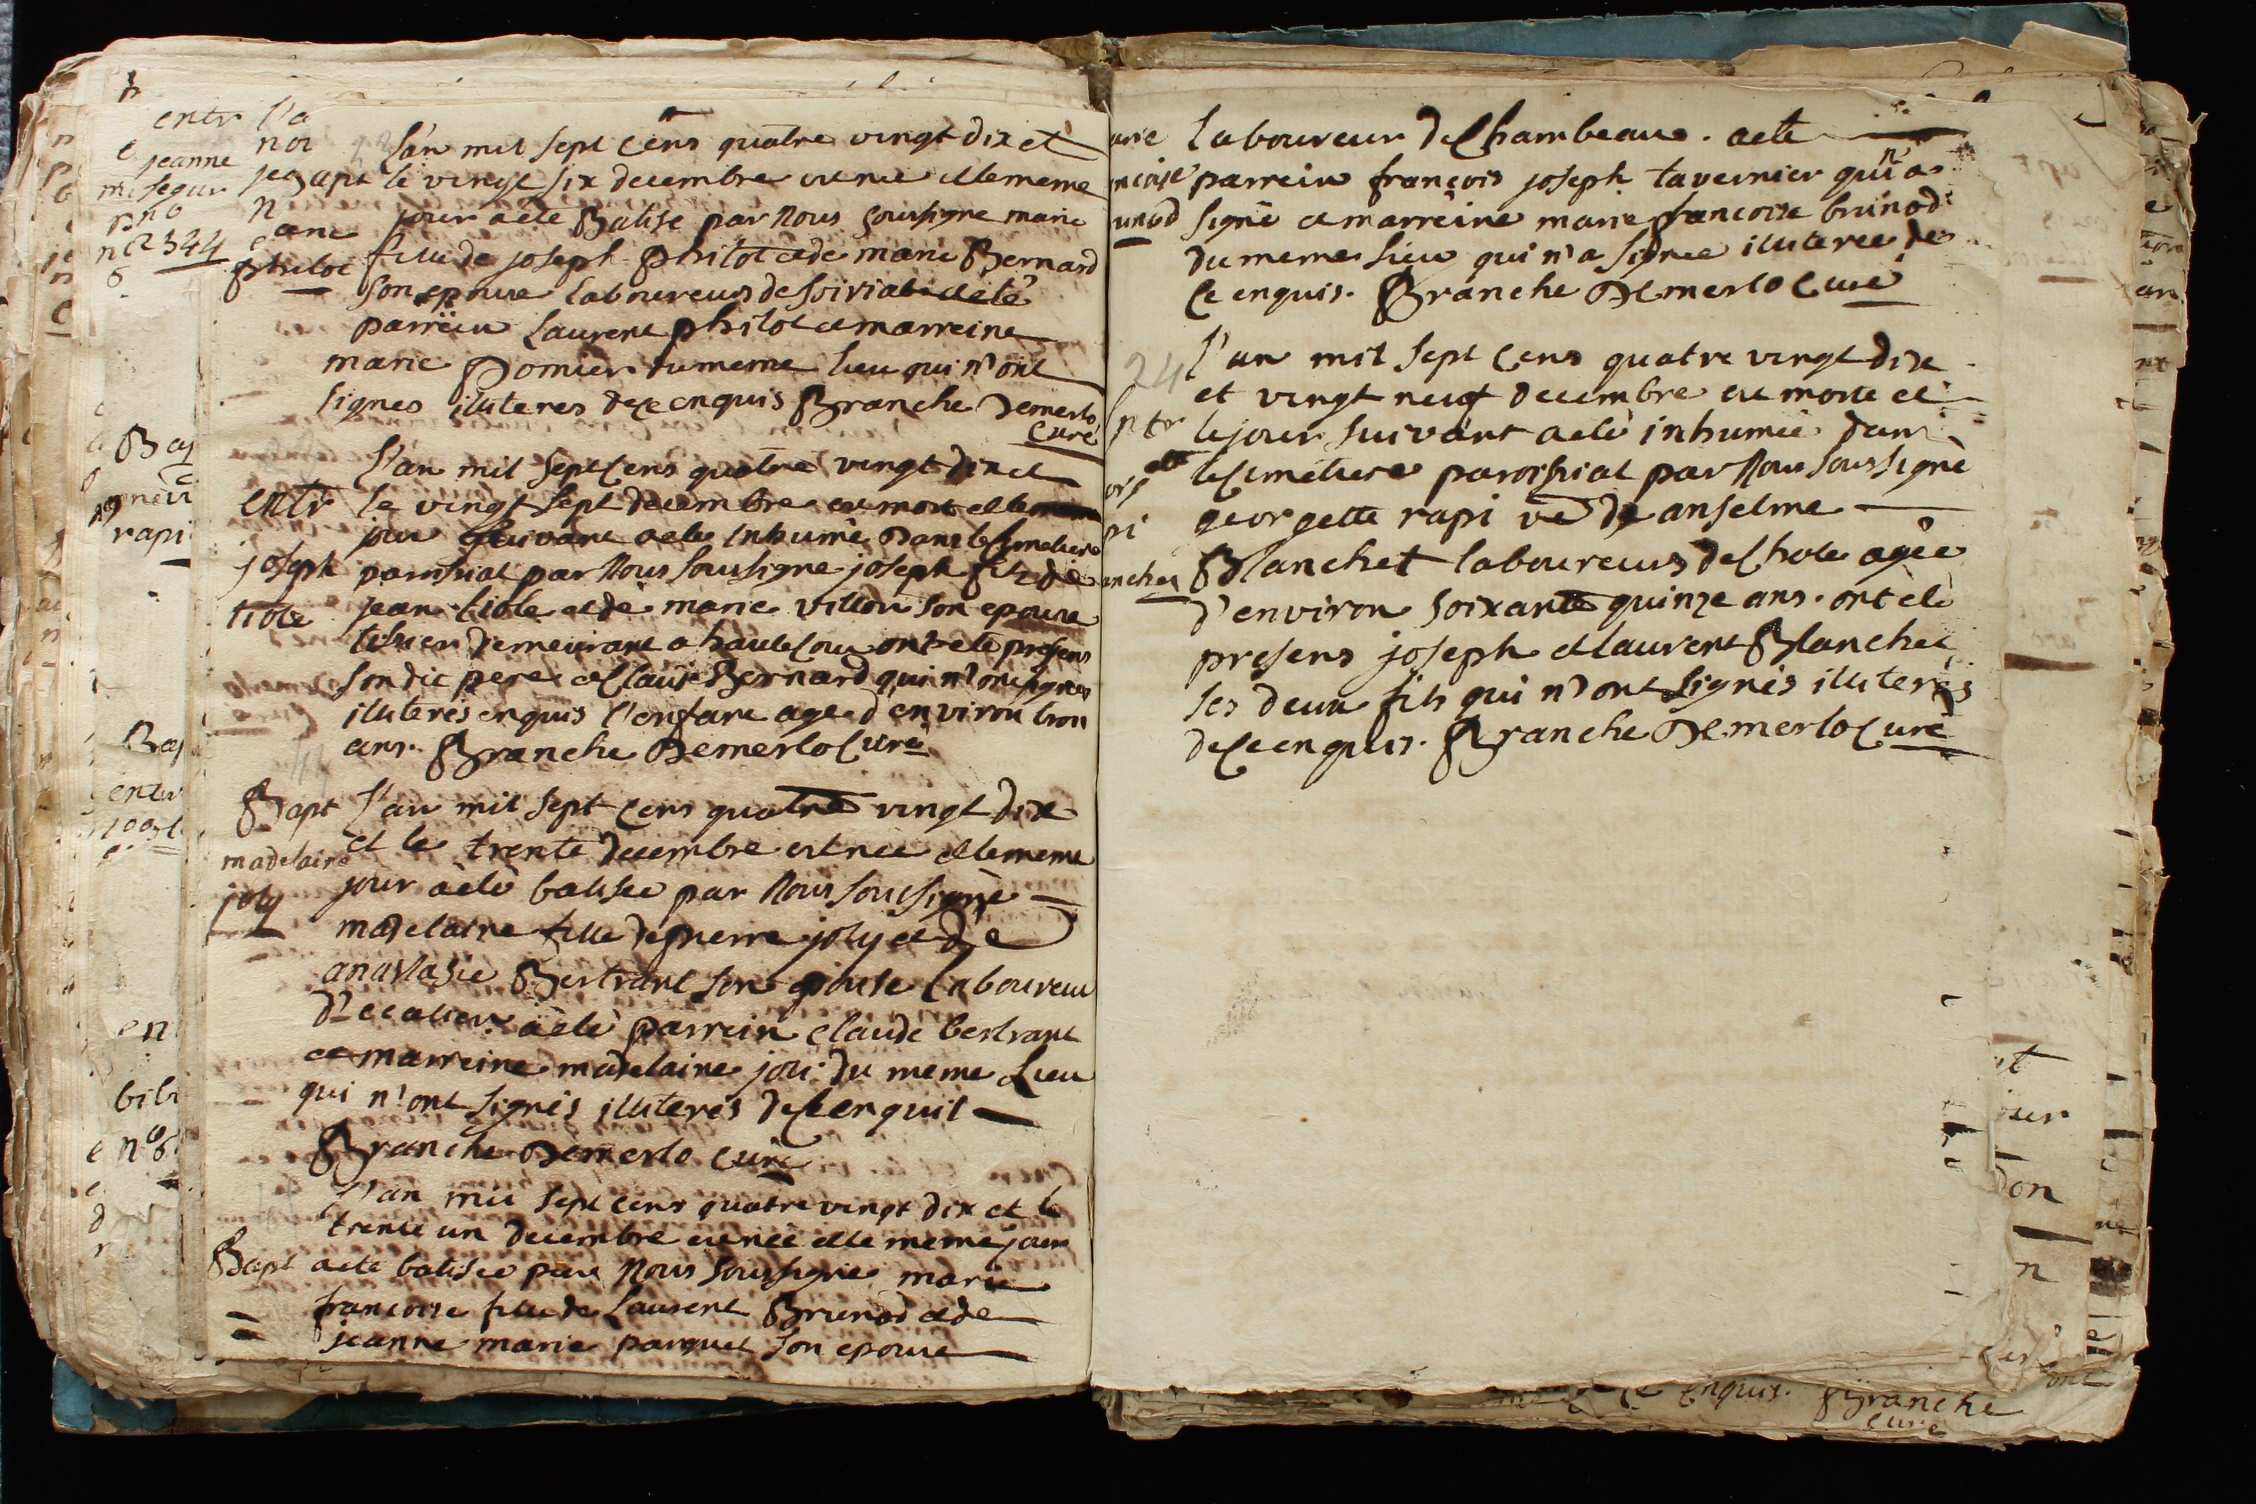 L'an mil sept cens quatre vingt dix et
Bapt le vingt six decembre est née et le meme
jour a ete Batisé par Nous soussigné marie
fille de joseph philot et de marie Bernard
philot
son epouse laboureurs de Soiriat a eté
parrein Laurent philot et marreine
marie Pomier du meme lieu qui n'ont
signes illiteres de ce enquis Branche Demerlo
curé
L'an mil sept cens quatre vingt dix et
entr le vingt sept decembre est mort et le
jour suivant a ete inhumé Dans le cimetiere
joseph paroissial par Nous soussigné joseph fils de
tiole jean tiole et de marie villon son epouse
demeurant a haute Cour ont eté presens
son dit pere et Claude Bernard qui n'ont signes
illiterés enquis l'enfant agé d'environ trois
ans. Branche Demerlo Curé
Bapt L'an mil sept cens quatre vingt dix
et le trente decembre est née et le meme
madelaine
jour a eté batisée par Nous soussigné
joly
madelaine fille de pierre joly et de
anastasie Bertrant son epouse laboureur
a eté parrein claude bertrant
et marreine madelaine joli du meme Lieu
qui n'ont signés illiterés de ce enquis
Branche Demerlo curé
L'an mil sept cens quatre vingt dix et le
trente un decembre est née et le meme jour
Bapt a ete batisée par Nous soussigné marie
francoise fille de Laurent Brunod et de
jeanne marie parquet son epouse
laboureur de Chambeau. a eté
parrein françois joseph tavernier qui n'a
signé et marreine marie francoise brunod
du meme lieu qui n'a signée illiterée de
ce enquis. Branche Demerlo Curé
24
L'an mil sept cens quatre vingt dix
et vingt neuf decembre est morte et
le jour suivant a eté inhumée dans
le cimetiere paroissial par Nous soussigné
georgette rapi ve de anselme
Blanchet laboureurs de Chole agée
d'environ soixante quinze ans. ont eté
presens joseph et laurent Blanchet
ses deux fils qui n'ont signés illiterés
de ce enquis. Branche Demerlo Curé
enquis. Branche
curé